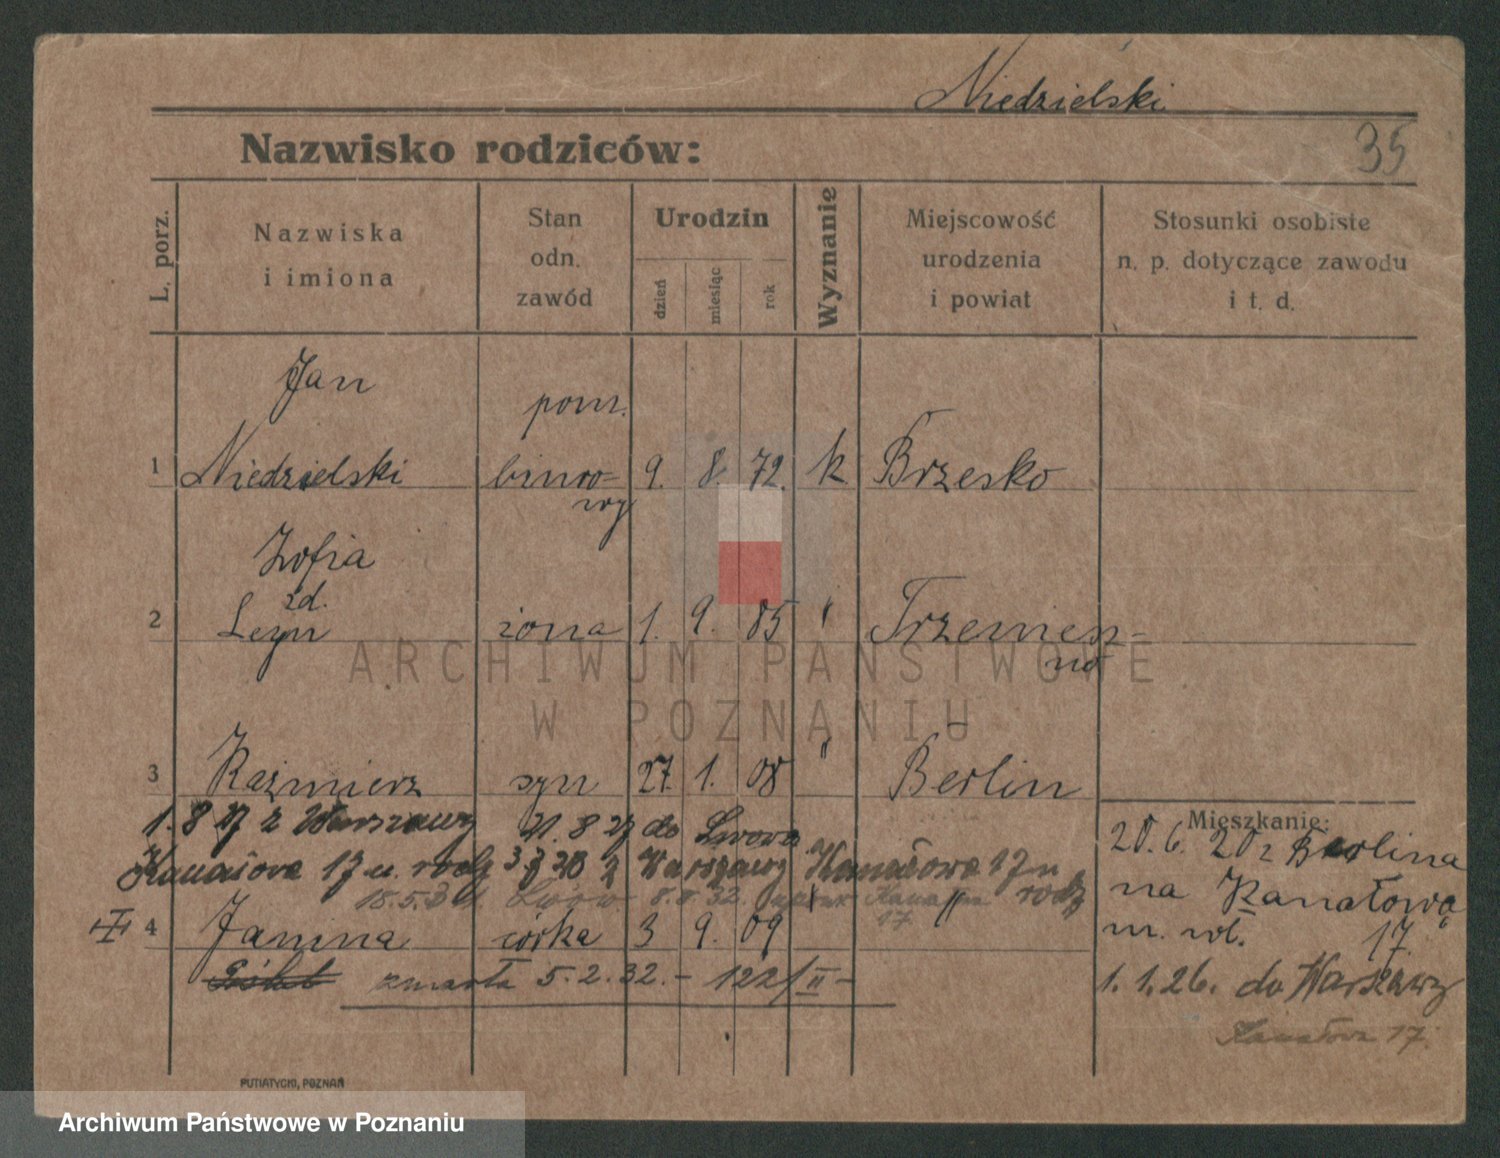 Niedzielski
Nazwisko rodziców:
35
L. porz.
Nazwiska
i imiona
Stan
odn.
zawód
Urodzin
dzień
miesiąc
rok
Wyznanie
Miejscowość
urodzenia
i powiat
Stosunki osobiste
n. p. dotyczące zawodu
i t. d.
Jan
pom.
1 Niedzielski biuro= 9. 8. 72. k Brzesko
wy
Zofia
zd.
2 żona 1. 9. 85 " Trzemesz-
no
3 Kazimierz syn 27. 1. 08 " Berlin
1. 8 27 z Warszawy 31. 8 27 do Lwowa
Kanałowa 17 u. rodz 3 3 28 z Warszawy Kanałowa 17 u
rodz
18.5.31. Lwów 8. II. 32. Kanałowa
17
4 Janina córka 3 9. 09 "
zmarła 5.2.32.- 122/II-
Mieszkanie:
20.6. 20 z Berlina
na Kanałową
m. wł. 17.
1.1.26. do Warszawy
Kanałowa 17.
PUTIATYCKI, POZNAŃ
ARCHIWUM PAŃSTWOWE
W POZNANIU
Archiwum Państwowe w Poznaniu